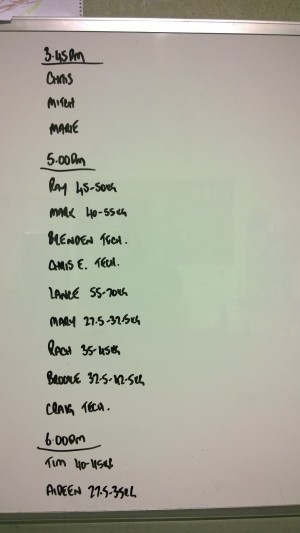 3.45pm
CHRIS
MITCH
MARIE
5.00pm
RAY 45-50KG
MARK 40-55KG
BRENDEN TECH.
CHRIS E. TECH.
LANCE 55-70KG
MARY 27.5-37.5KG
RACH 35-45KG
BROOKE 32.5-42.5KG
CRAIG TECH.
6.00pm
TIM 40-45KG
AIDEEN 27.5-35KG